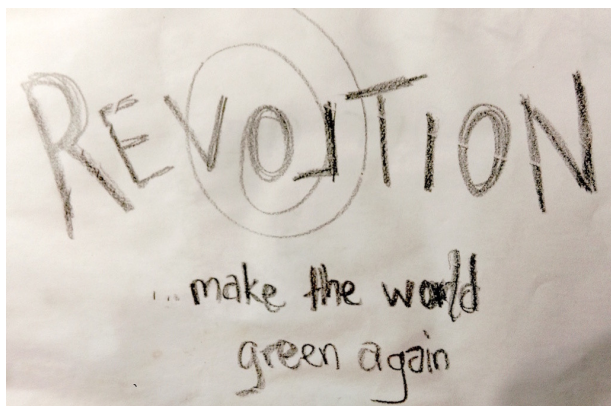 REVOLTION
...make the world
green again